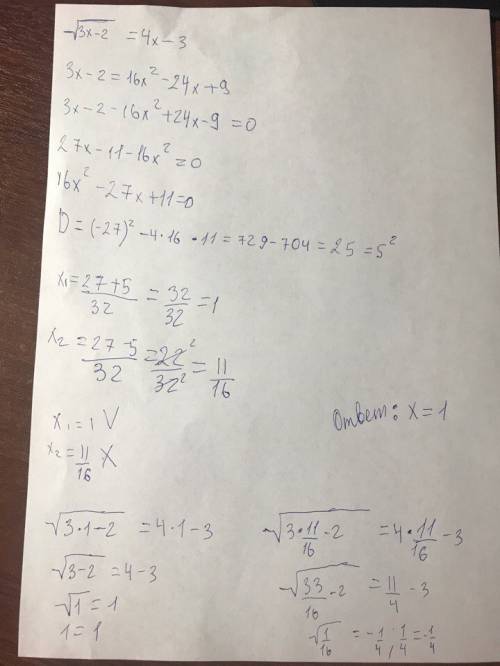 √(3x-2) = 4x-3
3x-2=16x²-24x+9
3x-2-16x²+24x-9=0
27x-11-16x²=0
16x²-27x+11=0
D=(-27)²-4·16·11=729-704=25=5²
x₁=(27+5)/32=32/32=1
x₂=(27-5)/32=22/32=11/16
x₁=1 V
x₂=11/16 X
Ответ: x=1
√(3·1-2)=4·1-3
√(3-2)=4-3
√1=1
1=1
√(3·11/16-2)=4·11/16-3
√(33/16-2)=11/4-3
√(1/16)=-1/4; 1/4=-1/4